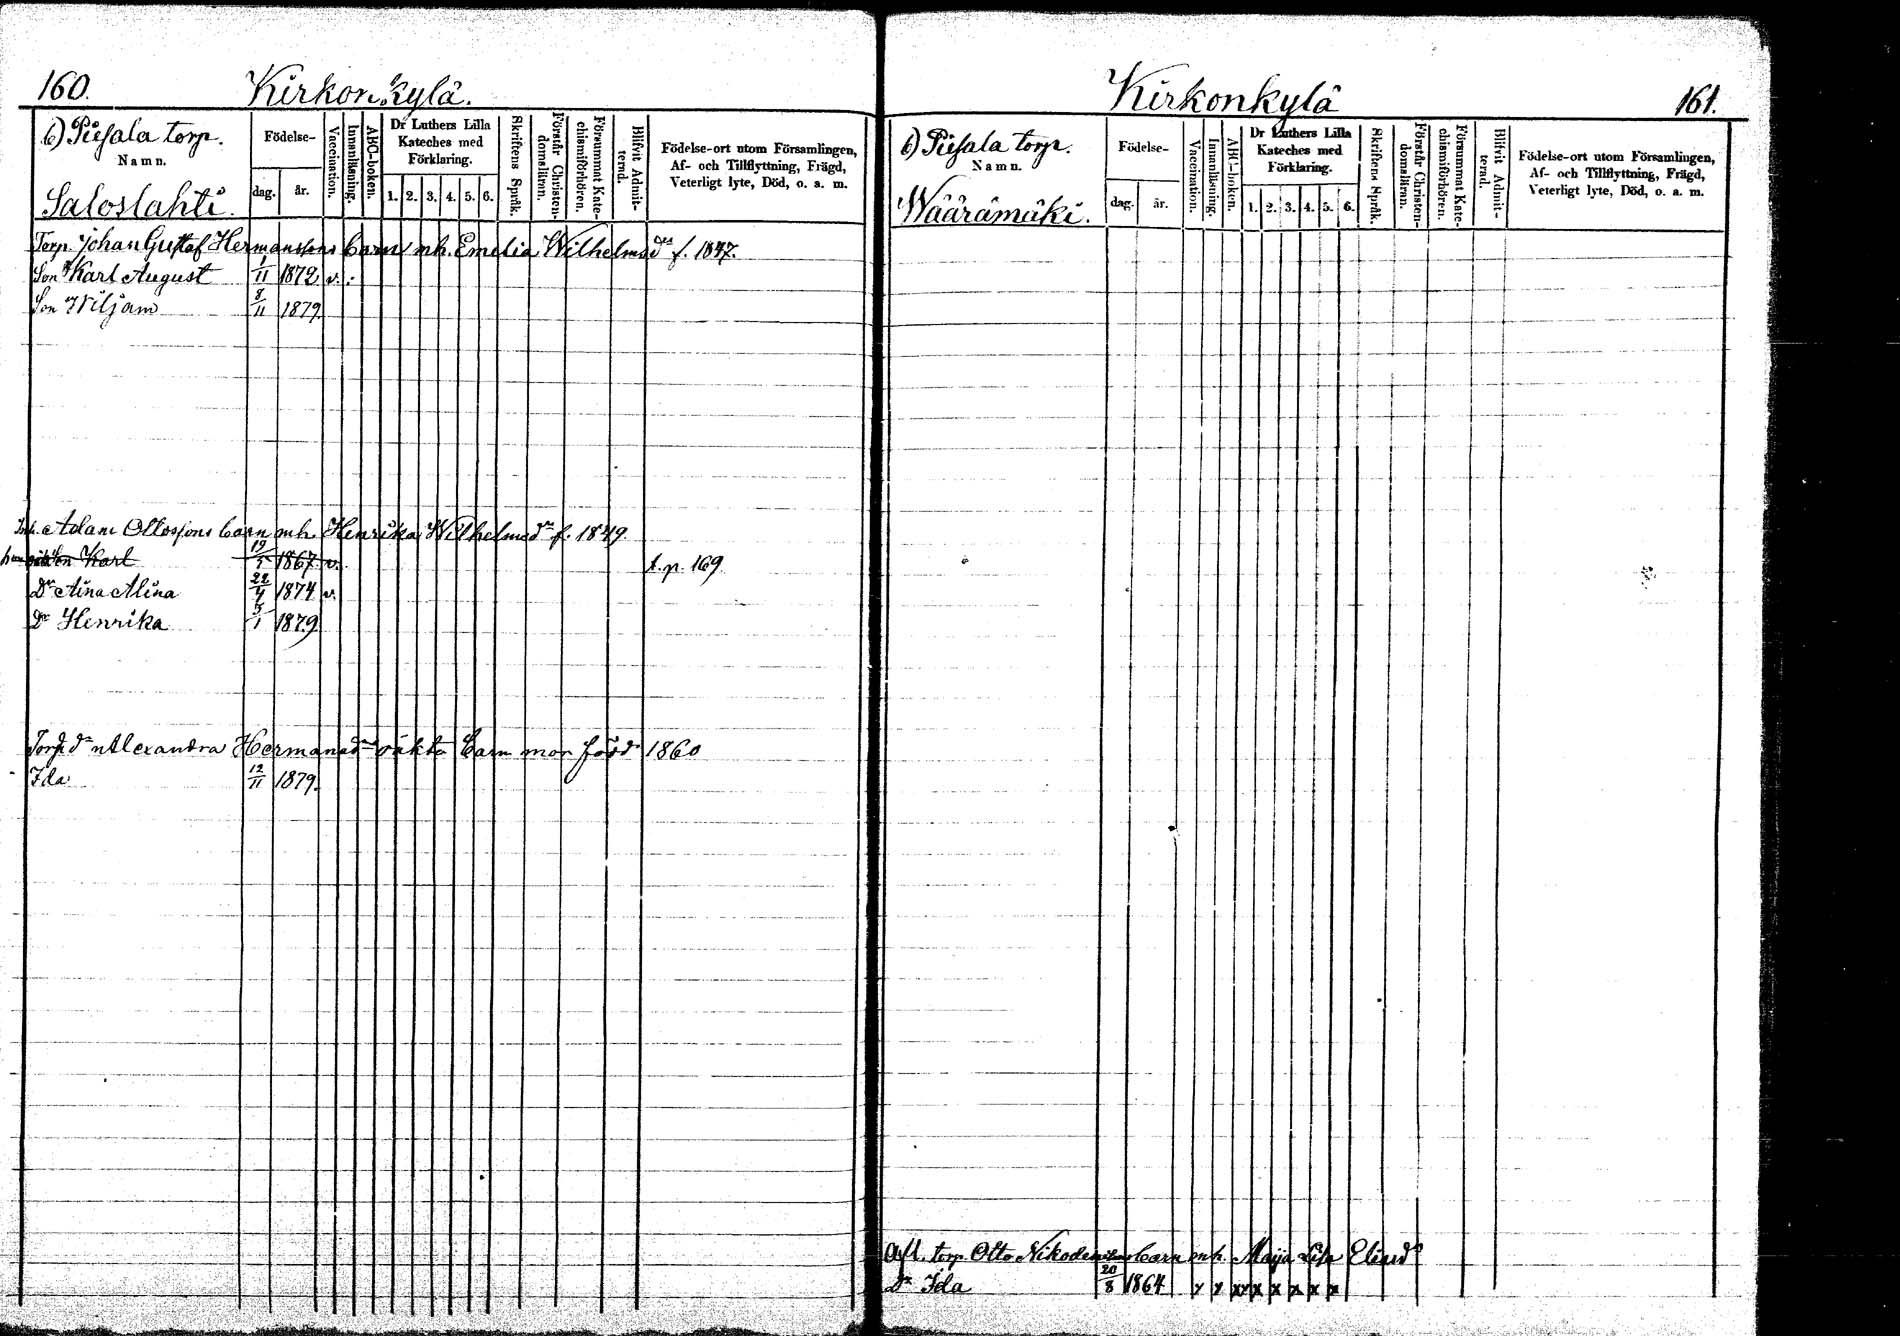 160.
Kirkonkylä.
6) Piesala torp.
Namn.
Saloslahti.
Födelse-
dag. år.
Vaccination.
Innanläsning.
ABC-boken.
Dr Luthers Lilla
Kateches med
Förklaring.
1. 2. 3. 4. 5. 6.
Skriftens Språk.
Förstår Christen-
domsläran.
Försummat Kate-
chismiförhören.
Blifvit Admit-
terad.
Födelse-ort utom Församlingen,
Af- och Tillflyttning, Frägd,
Veterligt lyte, Död, o. a. m.
Torp. Johan Gustaf Hermanssons barn mh. Emelia Wilhelmsdr f. 1847.
Son Karl August 1/11 1872 v.
Son Wiljam 8/11 1879.
Inh. Adam Ottossons barn mh. Henrika Wilhelmsdr f. 1849.
son Karl 19/5 1867. v. t. p. 169
Dr Aina Alina 22/4 1874 v.
Dr Henrika 5/1 1879
Torp. dr Alexandra Hermansdrs oäkta barn mor född 1860
Ida 12/11 1879.
Kirkonkylä
161.
6) Piesala torp.
Namn.
Wäärämäki.
Födelse-
dag. år.
Vaccination.
Innanläsning.
ABC-boken.
Dr Luthers Lilla
Kateches med
Förklaring.
1. 2. 3. 4. 5. 6.
Skriftens Språk.
Förstår Christen-
domsläran.
Försummat Kate-
chismiförhören.
Blifvit Admit-
terad.
Födelse-ort utom Församlingen,
Af- och Tillflyttning, Frägd,
Veterligt lyte, Död, o. a. m.
Afl. torp. Otto Nikodemi barn mh. Maija Lisa Eliedr
Dr Ida 20/8 1864 x x xx x x x x x